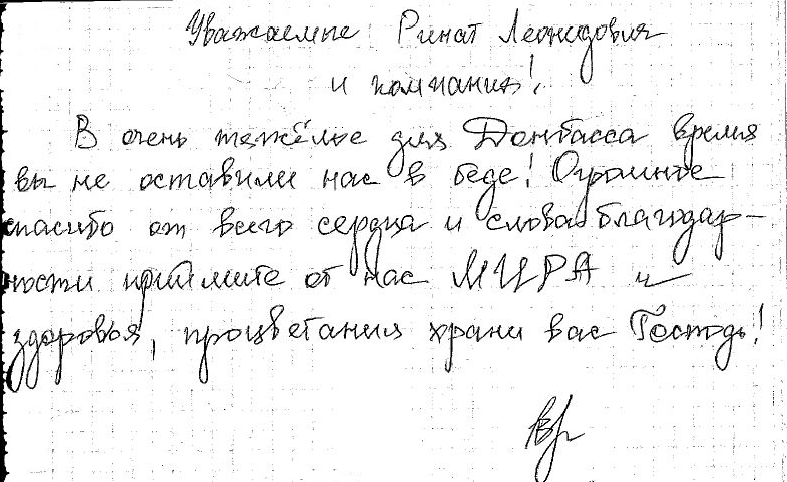 Уважаемые Ринат Леонидович
и компания!
В очень тяжёлое для Донбасса время
вы не оставили нас в беде! Огромное
спасибо от всего сердца и слова благодар-
ности примите от нас МИРА и
здоровья, процветания храни вас Господь!